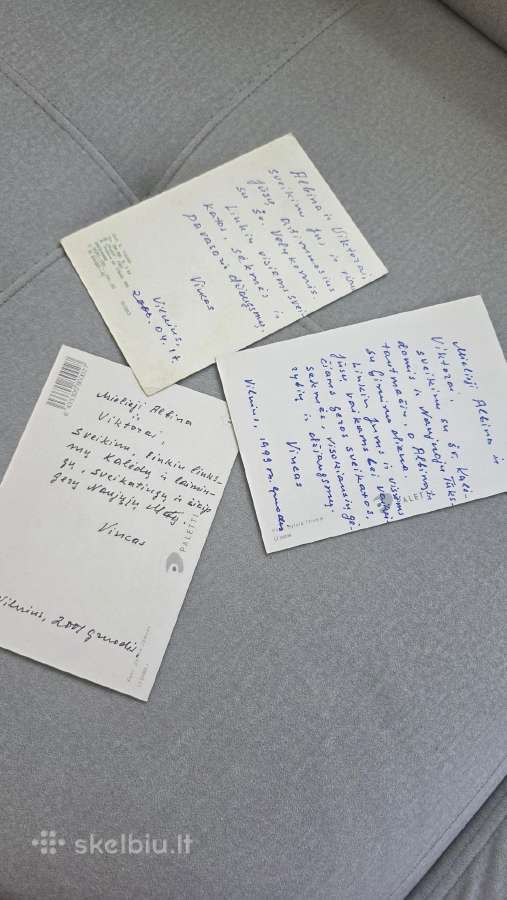 Albina ir Viktorai
sveikinu Jus ir
Jūsų artimuosius
su šv. Velykomis.
Linkiu visiems svei-
katos, sėkmės ir
pavasario džiaugsmų.
Vincas
Vilnius,
2000.04.17.
Mielieji Albina ir
Viktorai.
sveikinu su šv. Kalė-
domis ir Naujuoju Tūks-
tantmečiu. O Albinutę
su Gimimo diena.
Linkiu Jums ir visiems
Jūsų vaikams bei
geros sveikatos,
sėkmės, visokiausių gė-
rybių ir džiaugsmų.
Vincas
Vilnius, 1999 m. gruodis
PALETTI
Mielieji Albina
ir
Viktorai.
Sveikinu, linkiu links-
mų Kalėdų ir laimin-
gų, sveikatingų ir
gerų Naujųjų Metų.
Vincas
Vilnius, 2001 gruodis.
PALETTI
skelbiu.lt